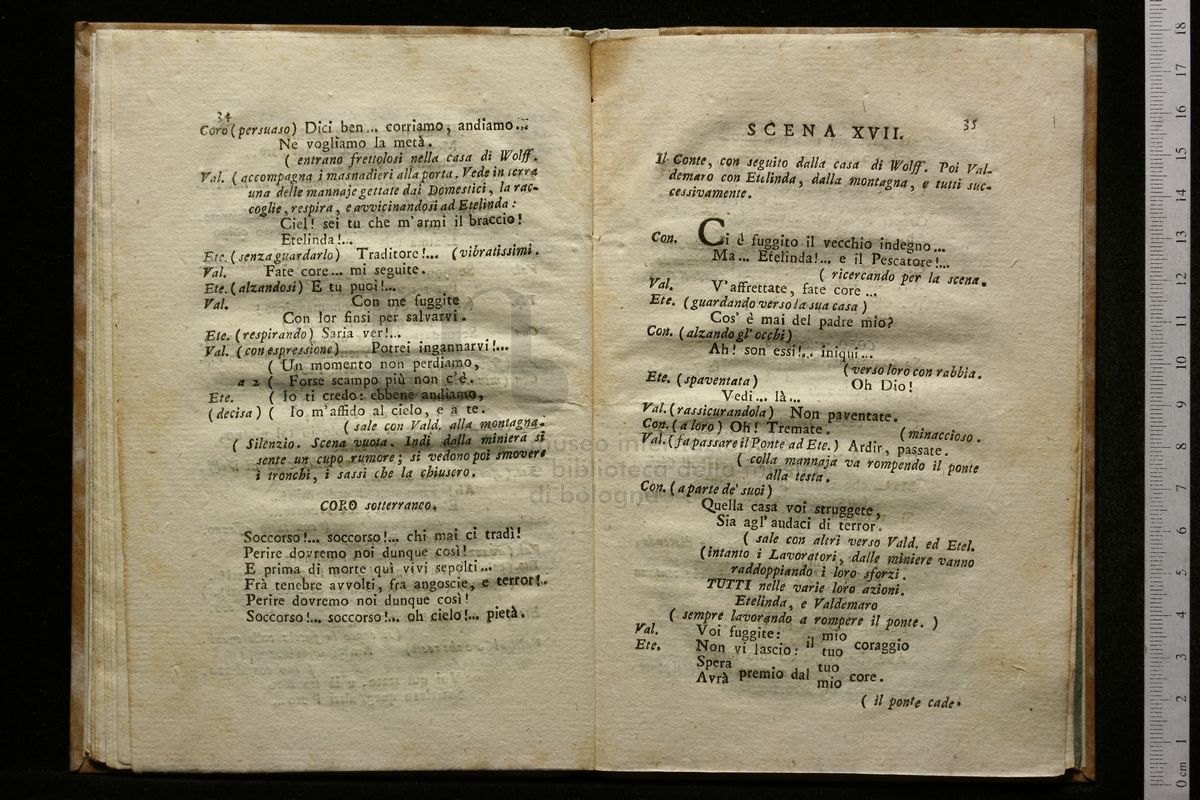 34
Coro (persuaso) Dici ben... corriamo, andiamo...
Ne vogliamo la metà.
( entrano frettolosi nella casa di Wolff.
Val. (accompagna i masnadieri alla porta. Vede in terra
una delle mannaje gettate dai Domestici, la rac-
coglie, respira, e avvicinandosi ad Etelinda:
Ciel! sei tu che m'armi il braccio!
Etelinda!...
Ete. (senza guardarlo) Traditore!... (vibratissimi.
Val. Fate core... mi seguite.
Ete. (alzandosi) E tu puoi!...
Val. Con me fuggite
Con lor finsi per salvarvi.
Ete. (respirando) Saria ver!...
Val. (con espressione) Potrei ingannarvi!...
( Un momento non perdiamo,
a 2 ( Forse scampo più non c'è.
Ete. ( Io ti credo: ebbene andiamo,
(decisa) ( Io m'affido al cielo, e a te.
( sale con Vald. alla montagna.
( Silenzio. Scena vuota. Indi dalla miniera si
sente un cupo rumore; si vedono poi smovere
i tronchi, i sassi che la chiusero.
CORO sotterraneo.
Soccorso!... soccorso!... chi mai ci tradì!
Perire dovremo noi dunque così!
E prima di morte quì vivi sepolti...
Frà tenebre avvolti, fra angoscie, e terror!..
Perire dovremo noi dunque così!
Soccorso!... soccorso!... oh cielo!... pietà.
35
SCENA XVII.
Il Conte, con seguito dalla casa di Wolff. Poi Val-
demaro con Etelinda, dalla montagna, e tutti suc-
cessivamente.
Con. Ci è fuggito il vecchio indegno...
Ma... Etelinda!... e il Pescatore!...
( ricercando per la scena.
Val. V'affrettate, fate core ...
Ete. (guardando verso la sua casa)
Cos' è mai del padre mio?
Con. (alzando gl' occhi)
Ah! son essi!... iniqui...
(verso loro con rabbia.
Ete. (spaventata) Oh Dio!
Vedi... là...
Val. (rassicurandola) Non paventate.
Con. (a loro) Oh! Tremate. (minaccioso.
Val. (fa passare il Ponte ad Ete.) Ardir, passate.
( colla mannaja va rompendo il ponte
alla testa.
Con. (a parte de' suoi)
Quella casa voi struggete,
Sia agl' audaci di terror.
( sale con altri verso Vald. ed Etel.
(intanto i Lavoratori, dalle miniere vanno
raddoppiando i loro sforzi.
TUTTI nelle varie loro azioni.
Etelinda, e Valdemaro
( sempre lavorando a rompere il ponte. )
Val. Voi fuggite: il mio coraggio
Ete. Non vi lascio: tuo
Spera premio dal tuo core.
Avrà mio
( il ponte cade.
museo
e biblioteca della
di bologna
18
17
16
15
14
13
12
11
10
9
8
7
6
5
4
3
2
1
0 cm